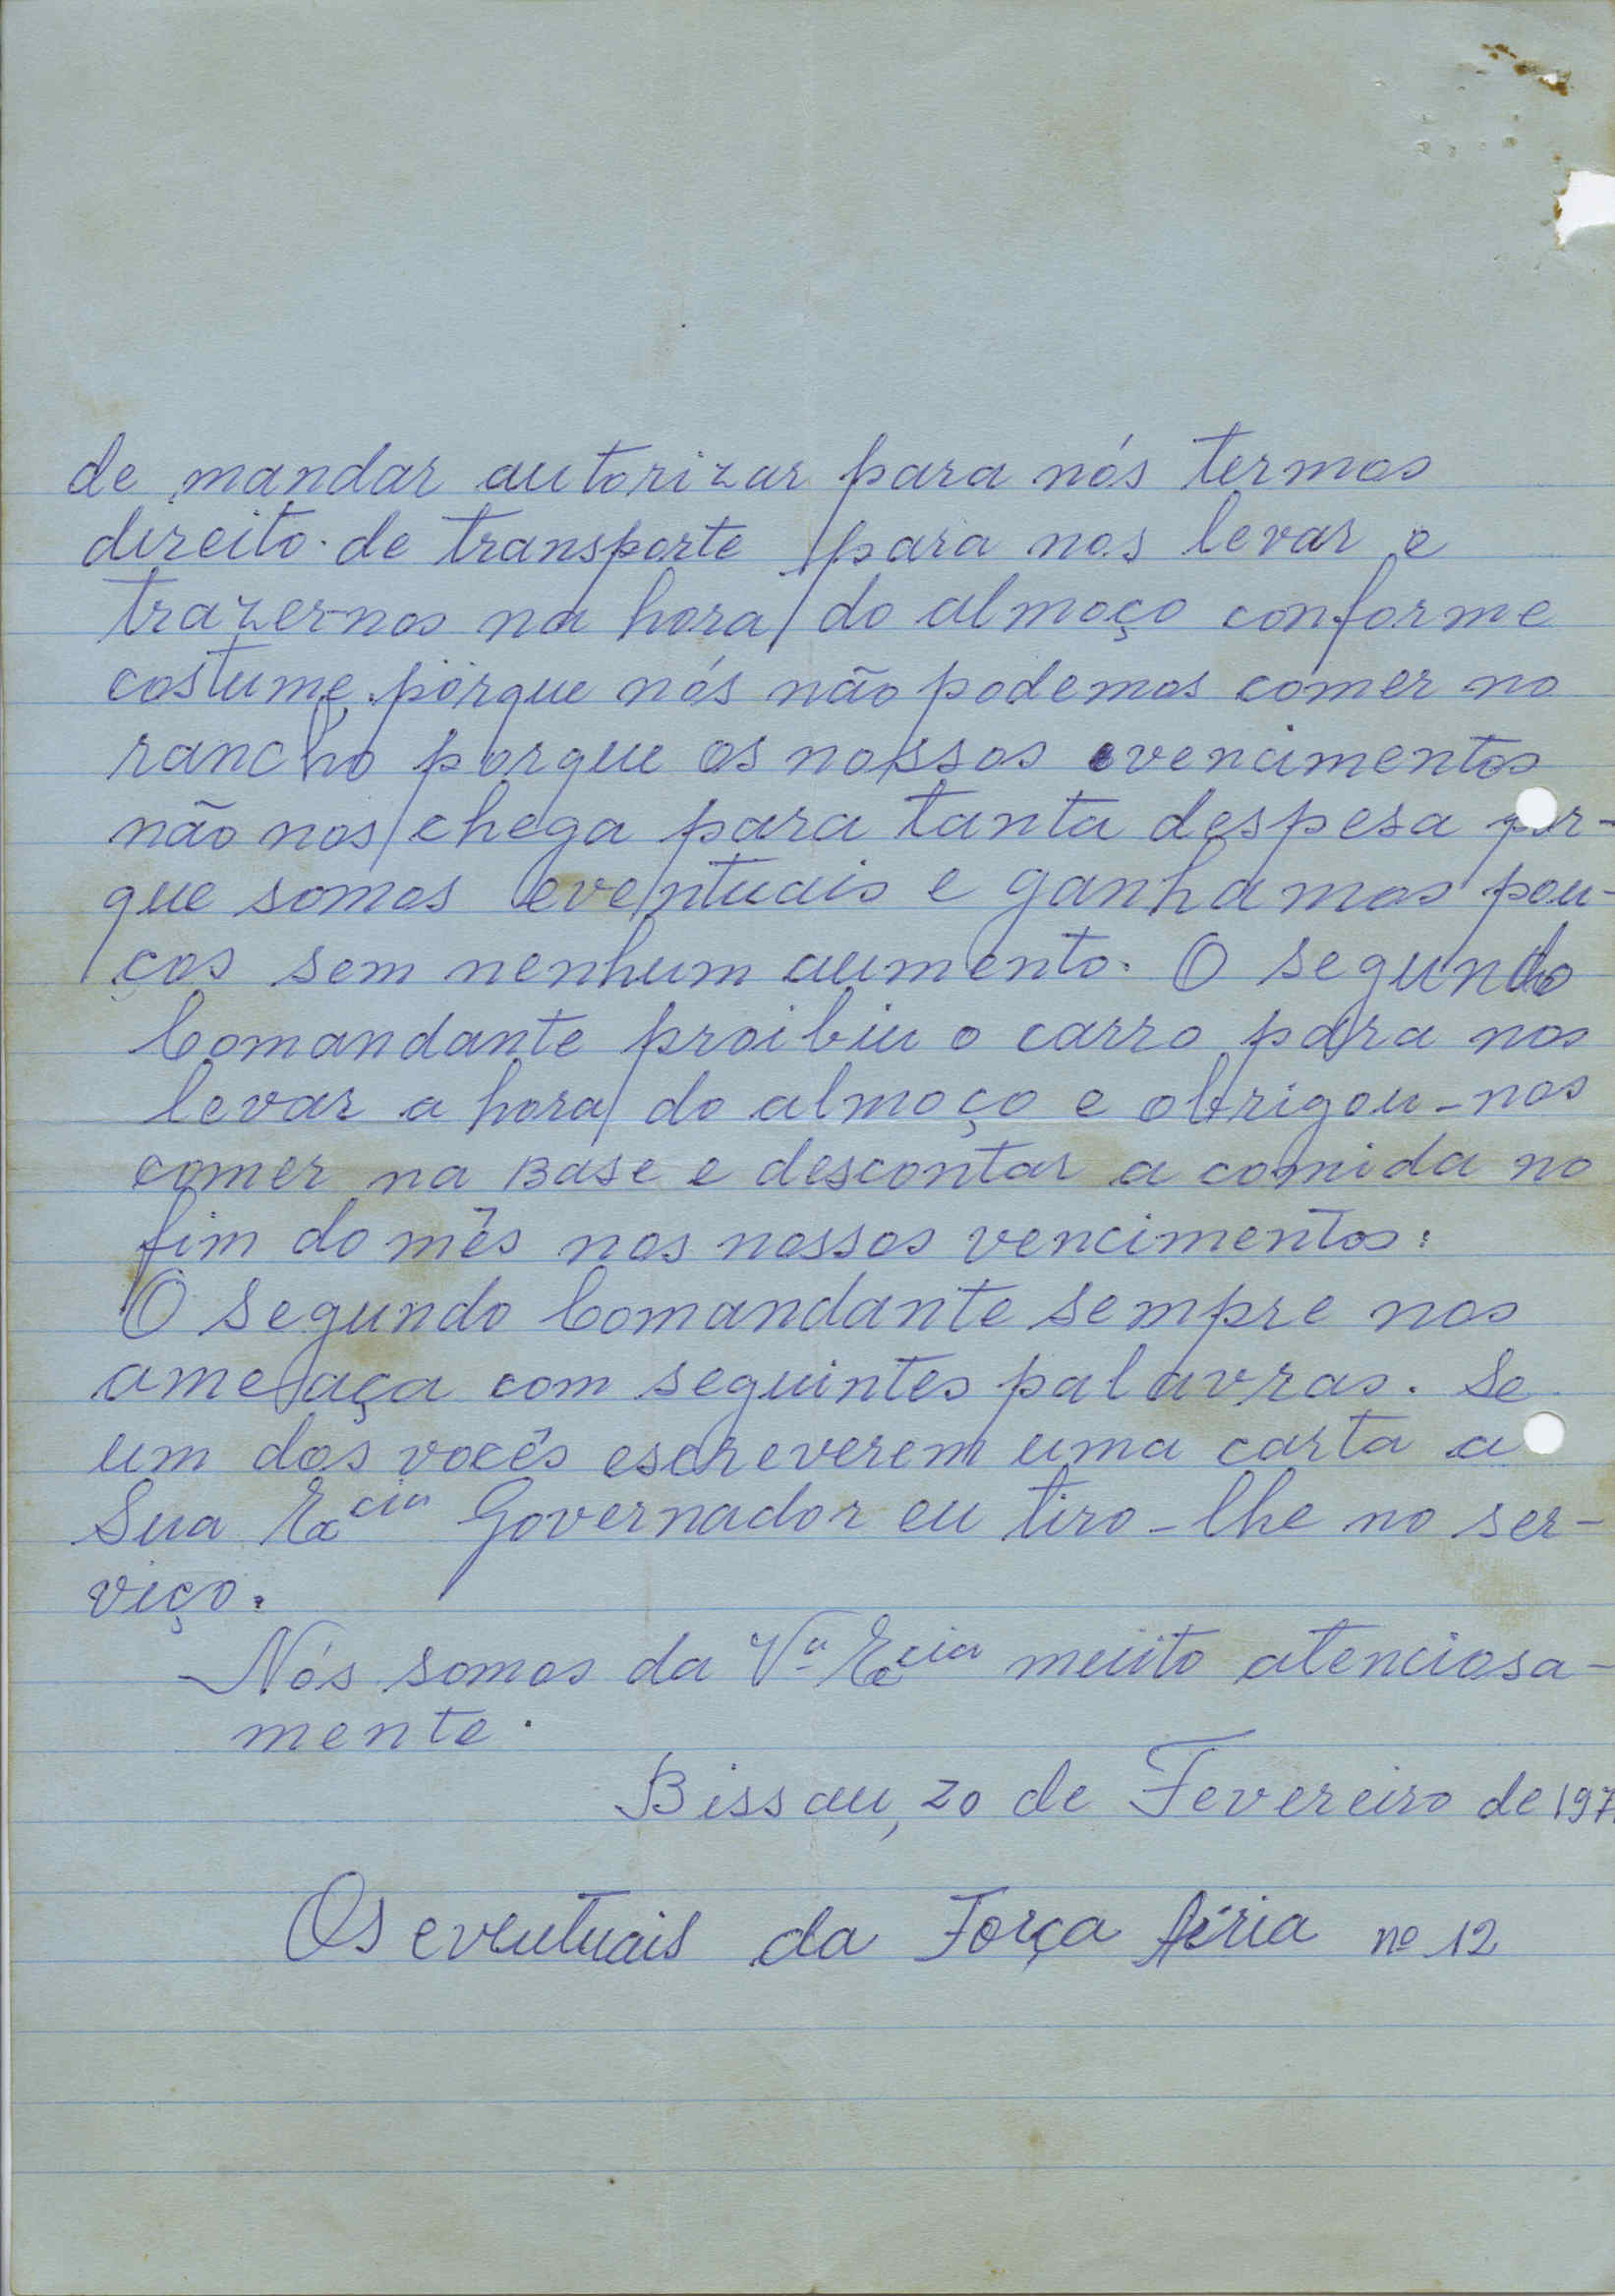 de mandar autorizar para nós termos
direito de transporte para nos levar e
trazer-nos na hora do almoço conforme
costume porque nós não podemos comer no
rancho porque os nossos vencimentos
não nos chega para tanta despesa por-
que somos eventuais e ganhamos pou-
ços sem nenhum aumento. O segundo
Comandante proibiu o carro para nos
levar a hora do almoço e obrigou-nos
comer na Base e descontar a comida no
fim do mês nos nossos vencimentos:
O segundo Comandante sempre nos
ameaça com seguintes palavras. Se
um dos vocês escreverem uma carta a
Sua Excia Governador eu tiro-lhe no ser-
viço.
Nós somos da Vª Excia muito atenciosa-
mente.
Bissau, 20 de Fevereiro de 197
Os eventuais da Força Aéria nº 12